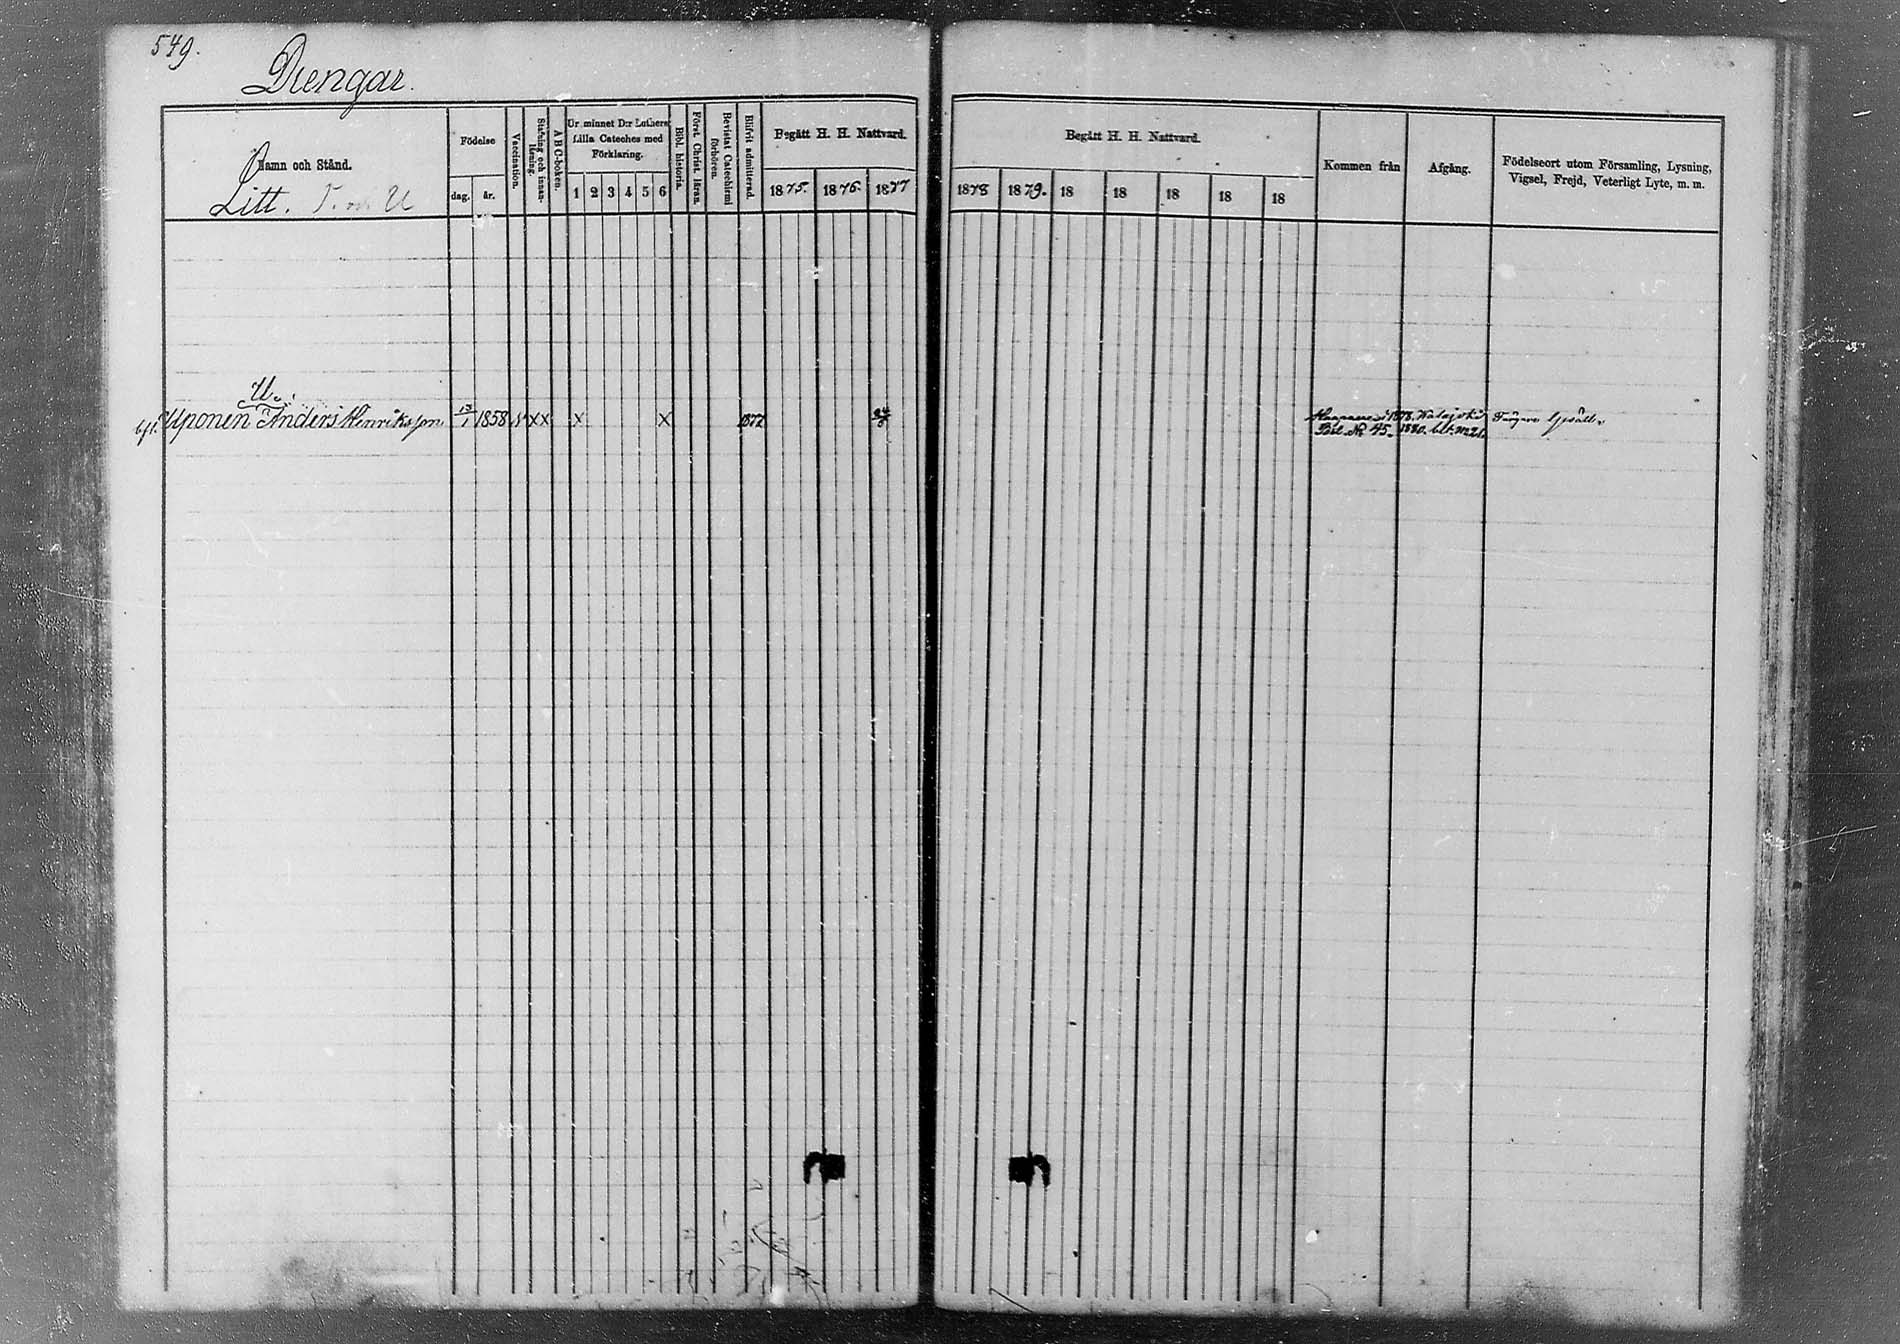 549.
Drengar.
Namn och Stånd.
Litt. T. och U
Födelse
dag.
år.
Vaccination.
Stafning och innan-läsning.
ABC-boken.
Ur minnet D:r Luthers
Lilla Cateches med
Förklaring.
1 2 3 4 5 6
Bibl. historia.
Först. Christ. läran.
Bevistat Catechismi förhören.
Blifvit admitterad.
Begått H. H. Nattvard.
1875. 1876. 1877
Begått H. H. Nattvard.
1878 1879. 18 18 18 18 18
Kommen från
Afgång.
Födelseort utom Församling, Lysning,
Vigsel, Frejd, Veterligt Lyte, m. m.
U.
Uponen Anders Henriksson 13/1 1858 x x x x 1877
1878. Kalajoki
Bil. No 45. 1880. bet.